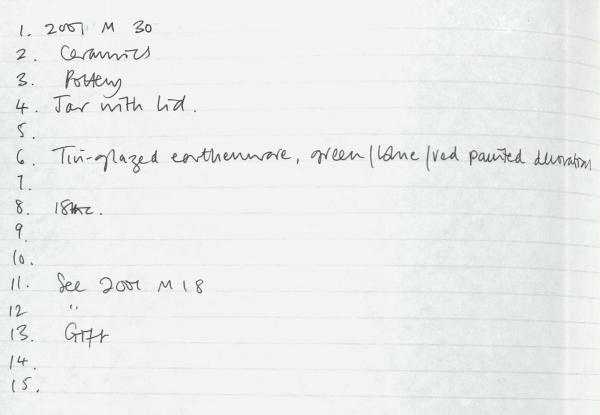 1. 2001 M 30
2. Ceramics
3. Pottery
4. Jar with lid.
5.
6. Tin-glazed earthenware, green/blue/red painted decoration
7.
8. 18thc.
9.
10.
11. See 2001 M 18
12 "
13. Gift
14.
15.